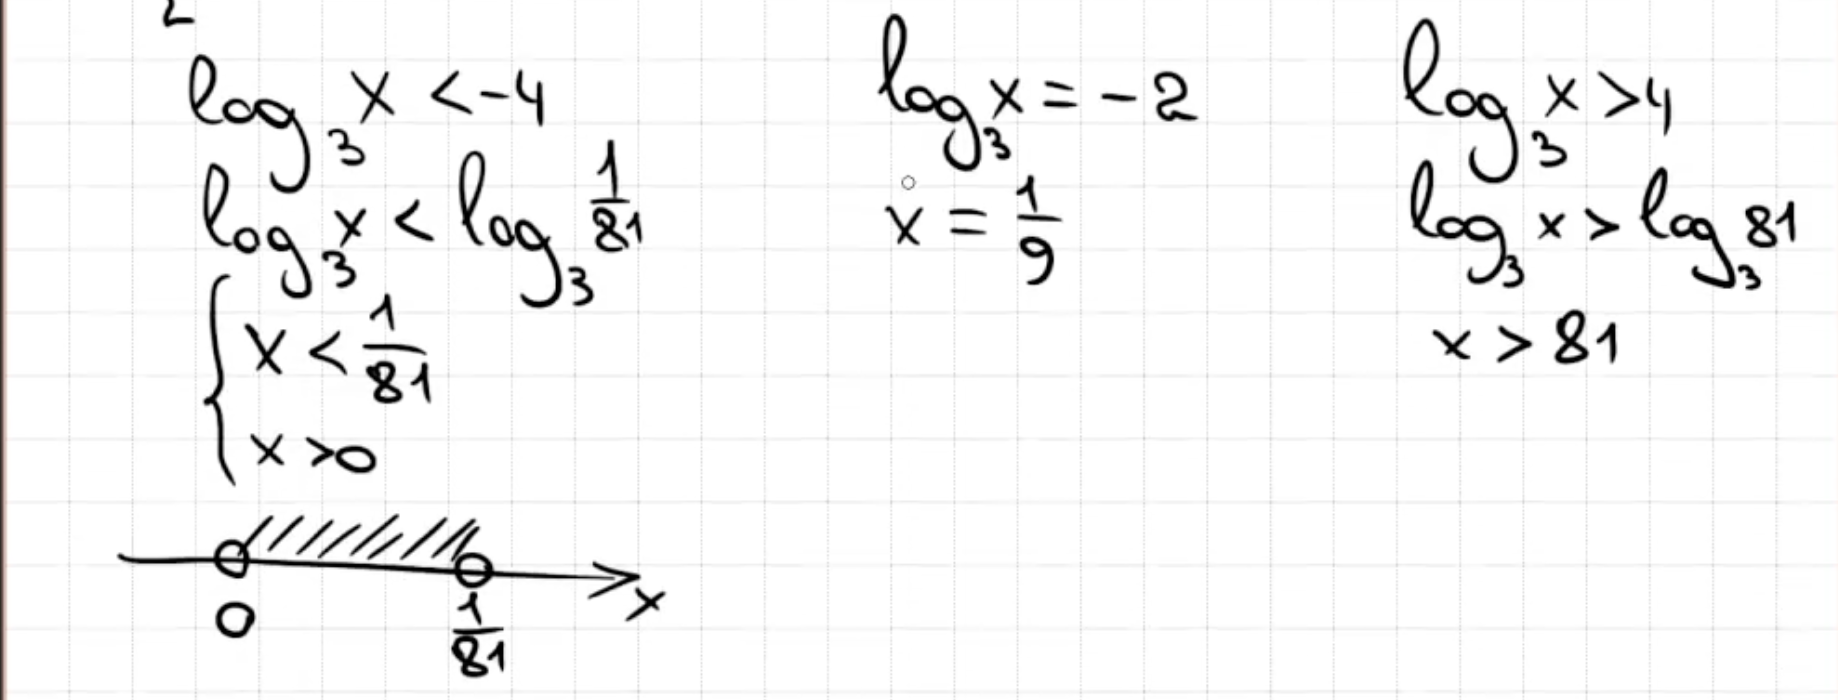 log₃ x < -4
log₃ x < log₃ 1/81
{ x < 1/81
x > 0
0 1/81 x
log₃ x = -2
x = 1/9
log₃ x > 4
log₃ x > log₃ 81
x > 81